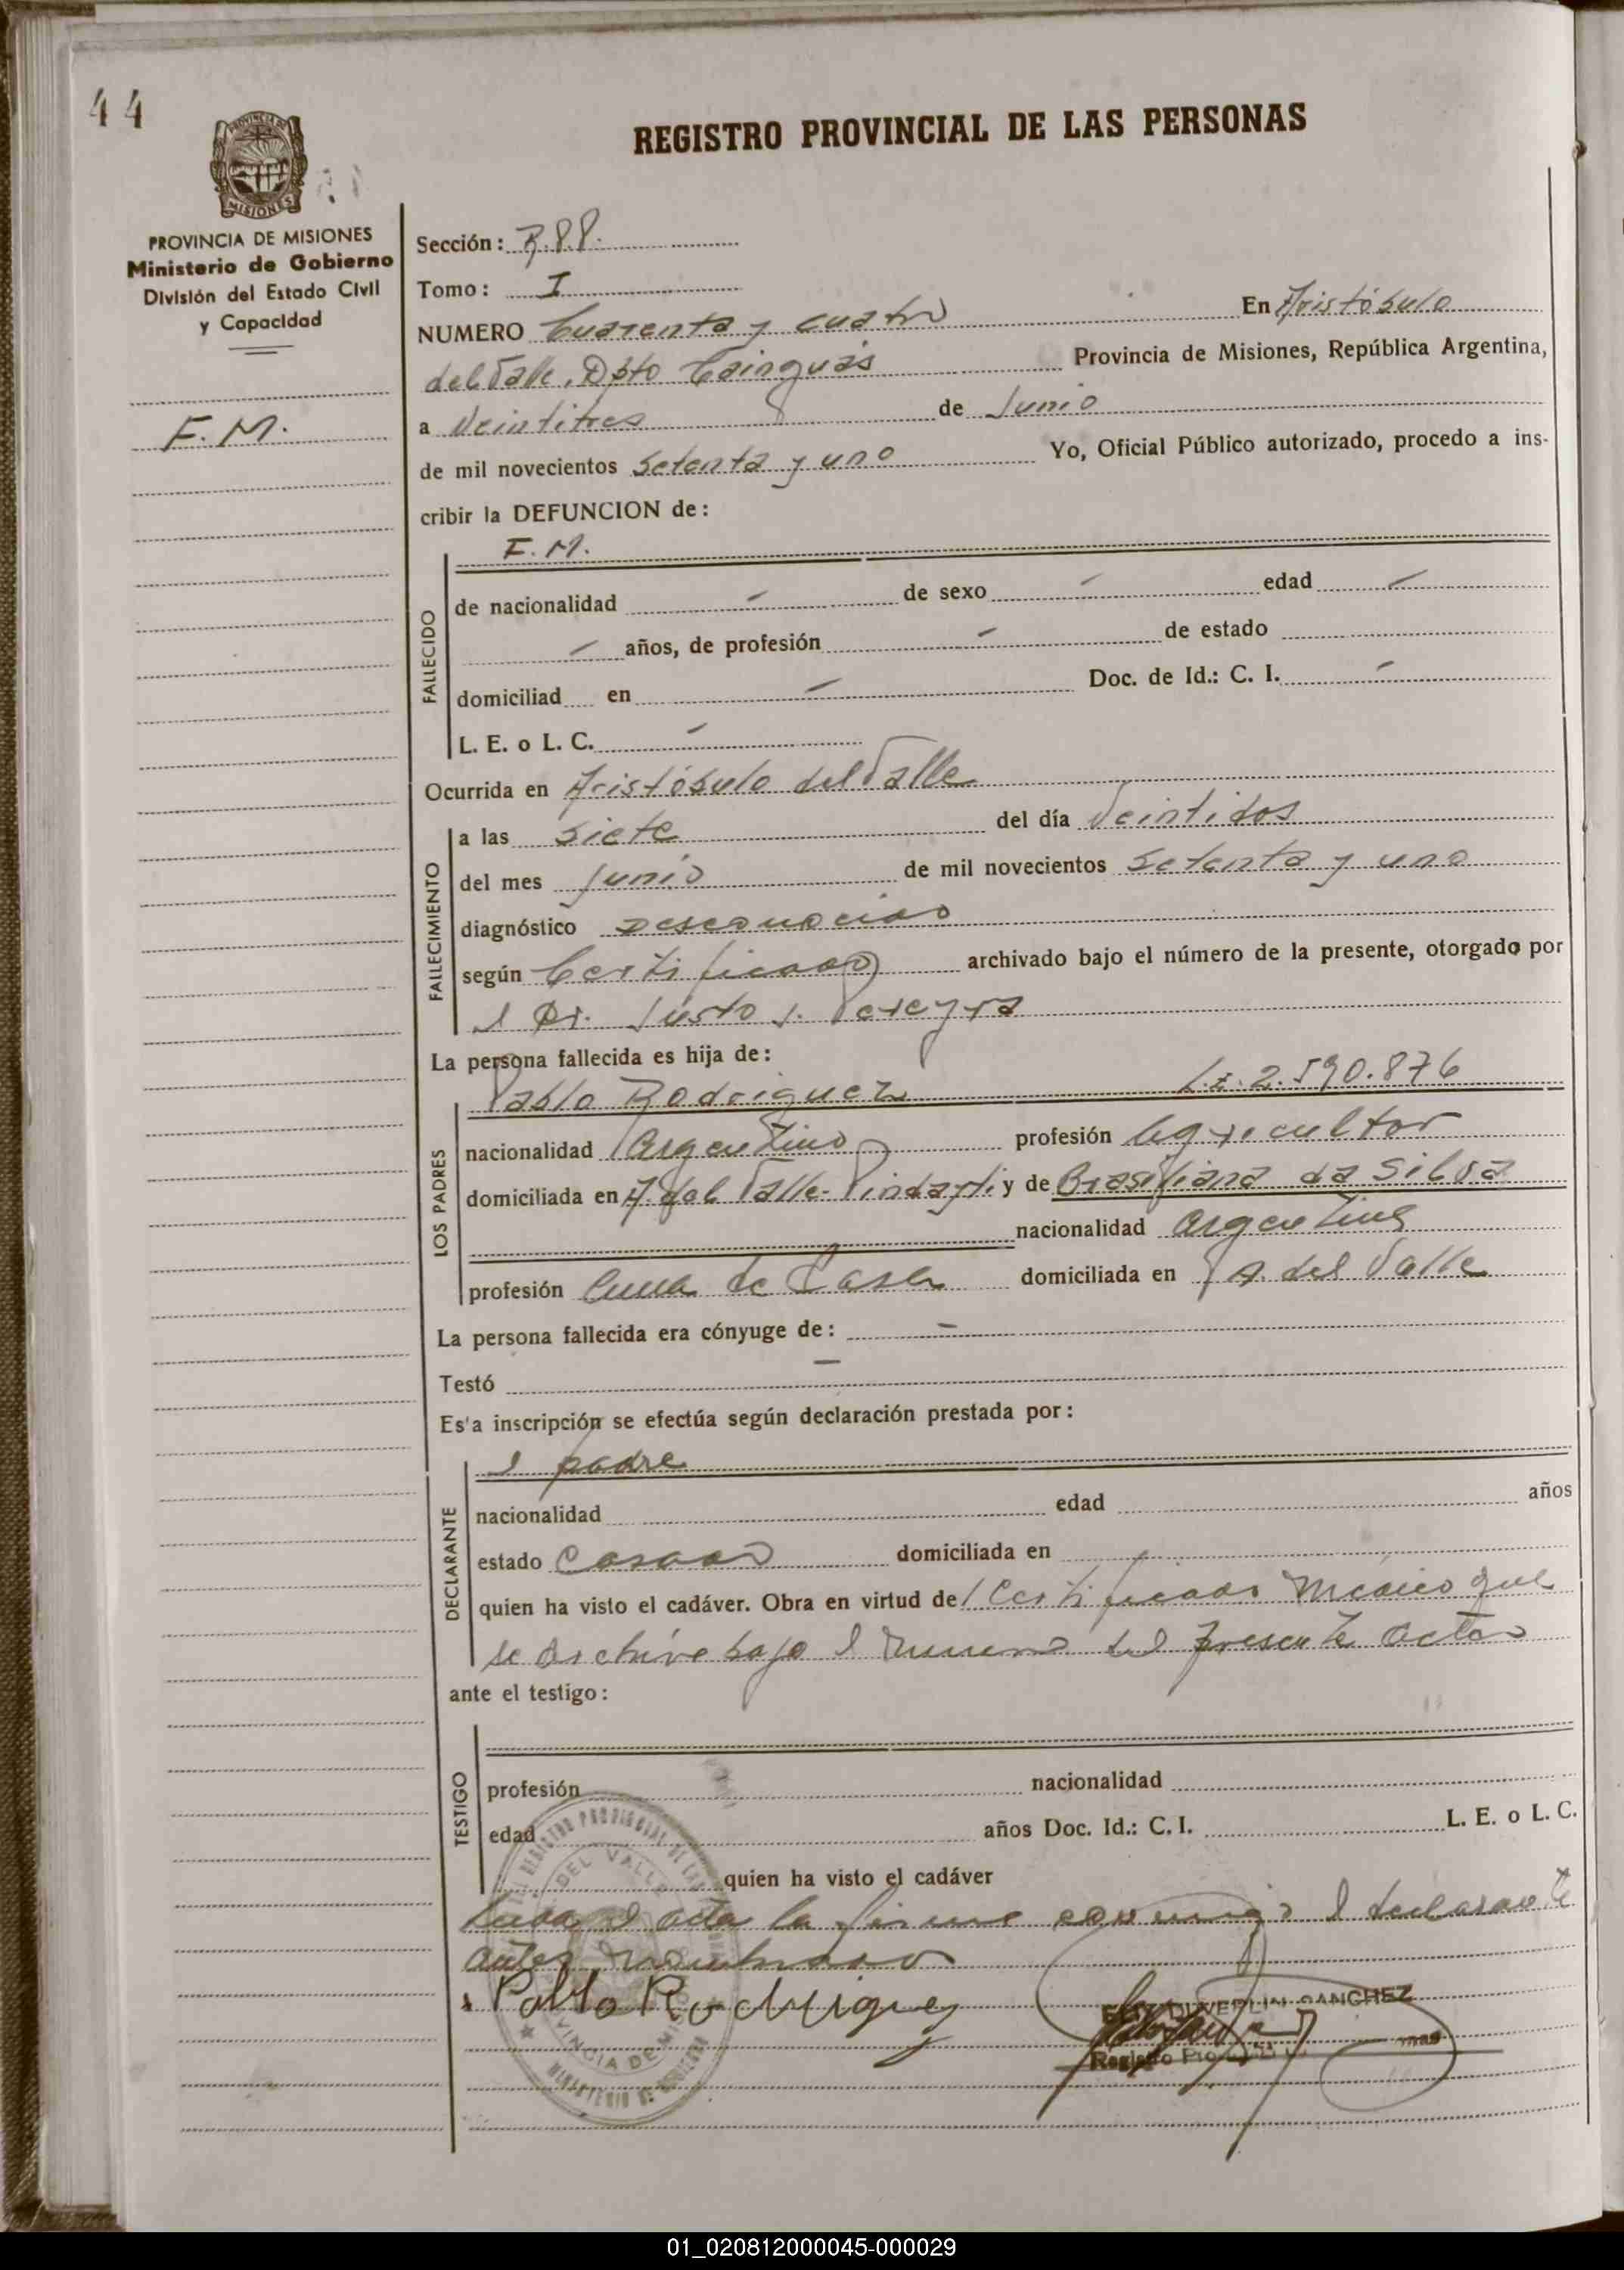 44
REGISTRO PROVINCIAL DE LAS PERSONAS
MISIONES
PROVINCIA DE MISIONES
Ministerio de Gobierno
División del Estado Civil
y Capacidad
F. M.
Sección: R.P.P.
Tomo: I
NUMERO Cuarenta y cuatro En Aristóbulo
del Valle, Dpto Cainguás Provincia de Misiones, República Argentina,
a Veintitres de Junio
de mil novecientos Setenta y uno Yo, Oficial Público autorizado, procedo a ins-
cribir la DEFUNCION de:
F. M.
FALLECIDO
de nacionalidad - de sexo - edad -
- años, de profesión - de estado
domiciliad en - Doc. de Id.: C. I. -
L. E. o L. C. -
Ocurrida en Aristóbulo del Valle
FALLECIMIENTO
a las Siete del día Veintidos
del mes Junio de mil novecientos Setenta y uno
diagnóstico Desconocido
según Certificado archivado bajo el número de la presente, otorgado por
el Dr. Justo J. Pereyra
La persona fallecida es hija de:
Pablo Rodriguez L.E. 2.590.876
LOS PADRES
nacionalidad Argentino profesión Agricultor
domiciliada en A. del Valle- Pindayti y de Brasiliana da Silva
nacionalidad argentina
profesión Ama de Casa domiciliada en A. del Valle
La persona fallecida era cónyuge de: -
Testó -
Es'a inscripción se efectúa según declaración prestada por:
el padre
DECLARANTE
nacionalidad edad años
estado Casado domiciliada en
quien ha visto el cadáver. Obra en virtud de Certificado Médico que
se archiva bajo el numero del presente acta
ante el testigo:
TESTIGO
profesión nacionalidad
edad años Doc. Id.: C. I. L. E. o L. C.
quien ha visto el cadáver
Leida el acta la firma conmigo el declarante
antes nombrado
Pablo Rodriguez
SANCHEZ
Registro
DEL VALLE
MINISTERIO DE
01_020812000045-000029